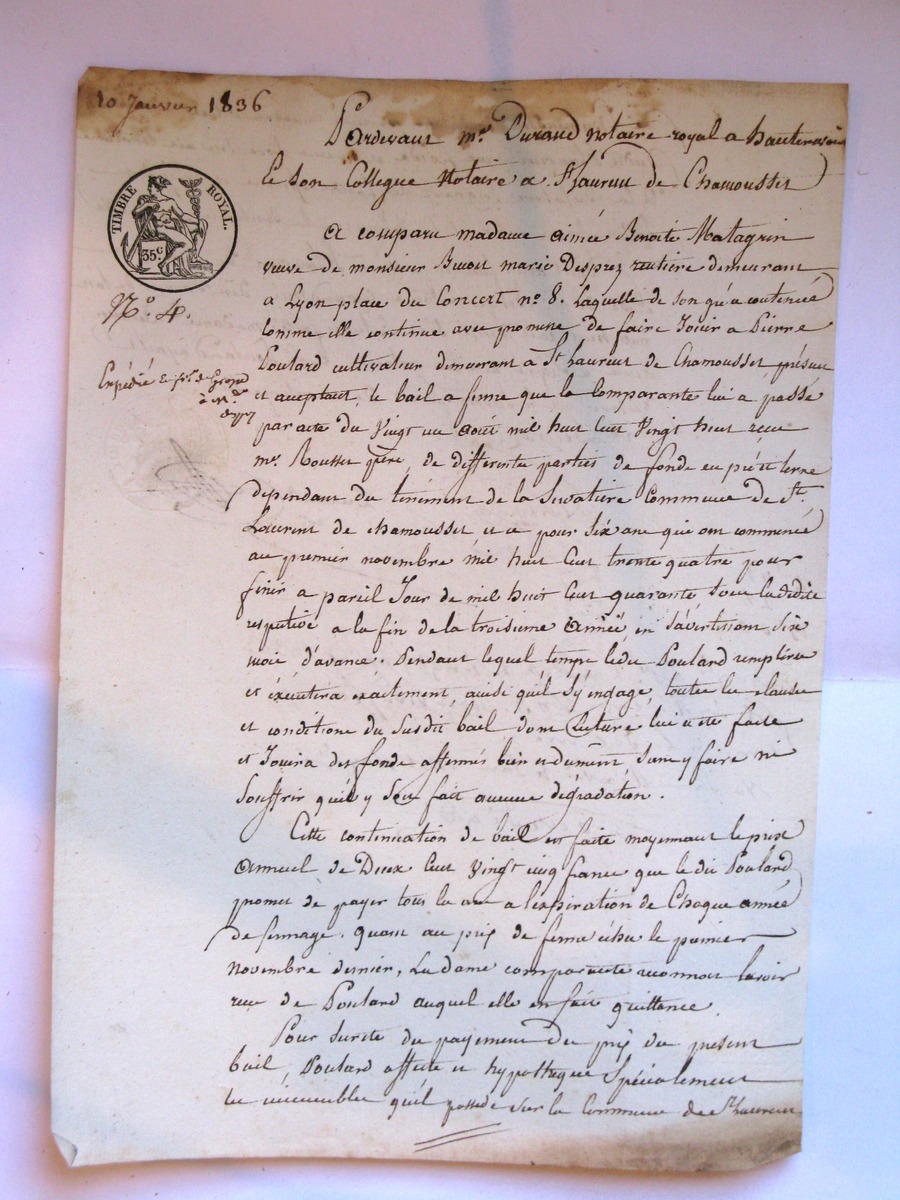 10 Janvier 1836
Pardevant me. Durand notaire royal a hauterivoire
et son Collegue Notaire a St. laurent de Chamousset
TIMBRE ROYAL.
35c
N°. 4.
Expédié
a comparu madame aimée Benoite Matagrin
veuve de monsieur Benoit marie Desprez rentiere demeurant
a Lyon place du Concert n°. 8. Laquelle de son gré a continué
Comme elle continue avec promesse de faire Jouir a Pierre
Poulard cultivateur demeurant a St. laurent de Chamousset, présent
et acceptant, le bail a ferme que la Comparante lui a passé
par acte du Vingt un août mil huit Cent Vingt huit reçu
me. Rousset père, de differentes parties de fonds en pré et terre
dependant du tenement de la Commune de St.
Laurent de chamousset et ce pour six ans qui ont commencé
au premier novembre mil huit Cent trente quatre pour
finir a pareil Jour de mil huit Cent quarante sous la dédite
respective a la fin de la troisieme année en s'avertissant six
mois d'avance. Pendant lequel temps ledit Poulard remplira
et éxécutera exactement, ainsi qu'il s'y engage, toutes les clauses
et conditions du susdit bail dont Lecture lui a été faite
et Jouira des fonds affermés bien et dûment sans y faire ni
Souffrir qu'il y soit fait aucune dégradation.
Cette continuation de bail est faite moyennant le prix
annuel de Deux Cent Vingt cinq francs que le dit Poulard
promet de payer tous les ans a l'expiration de Chaque année
de fermage. quant au prix de ferme échu le premier
novembre dernier, La dame comparante reconnoit l'avoir
reçu de Poulard auquel elle en fait quittance.
Pour sureté du payement du prix du present
bail, Poulard affecte et hypotheque Spécialement
les immeubles qu'il possede sur la Commune de St. laurent